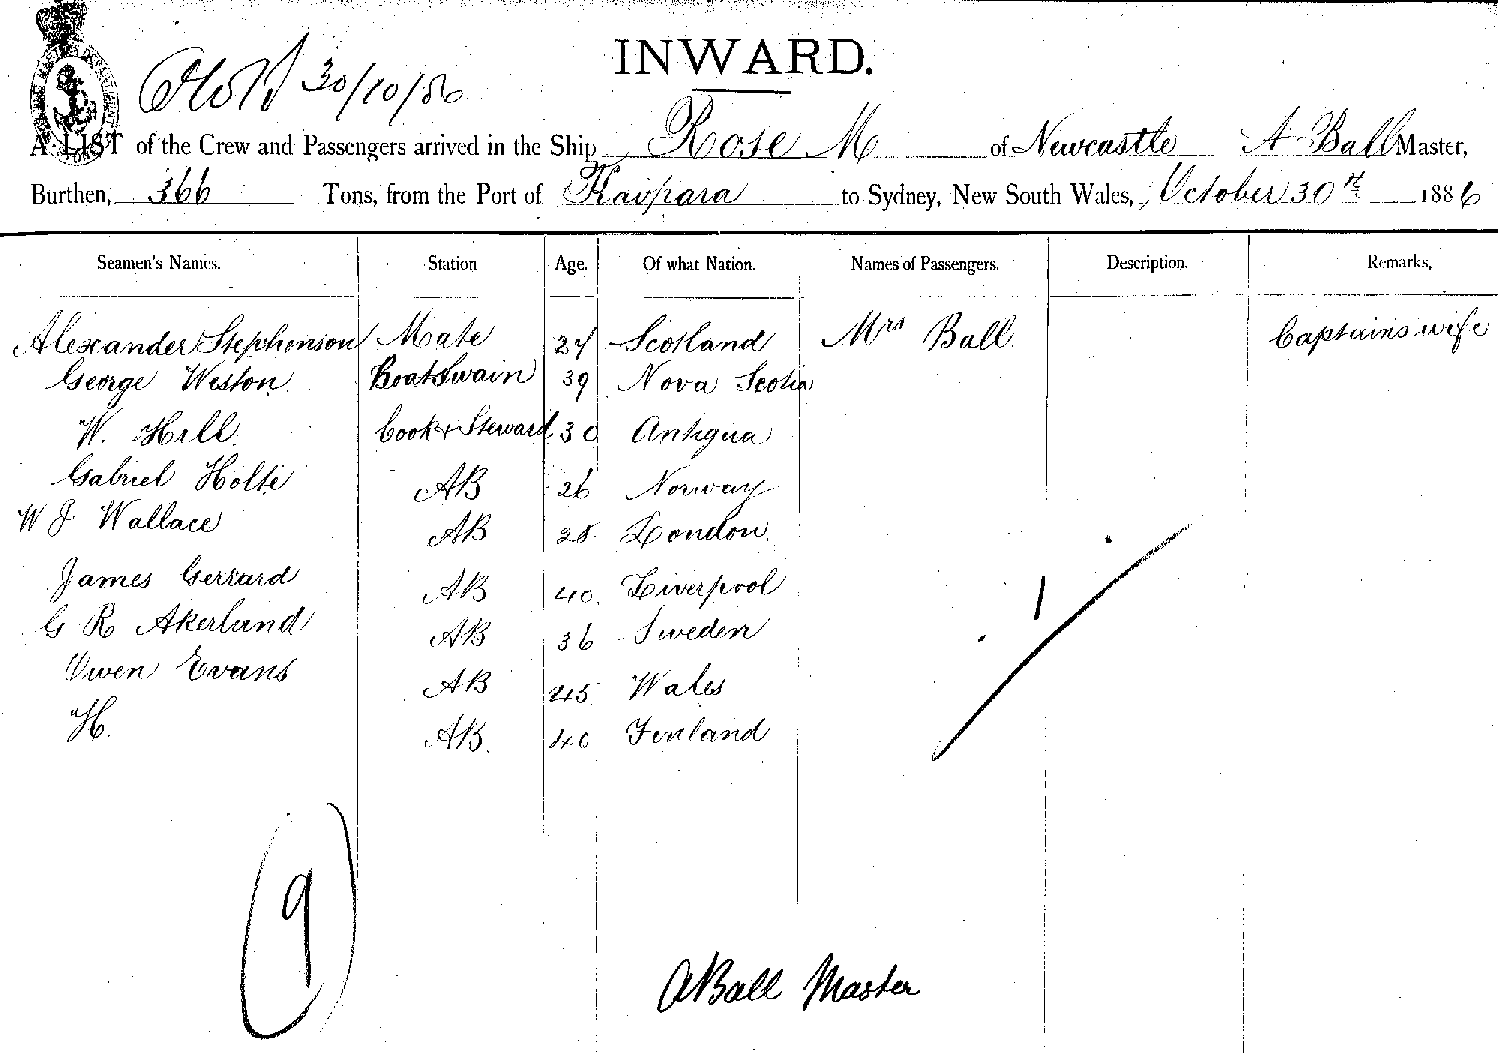 30/10/86
INWARD.
A LIST of the Crew and Passengers arrived in the Ship Rose M of Newcastle A Ball Master,
Burthen, 366 Tons, from the Port of Kaipara to Sydney, New South Wales, October 30th 1886
Seamen's Names. Station Age. Of what Nation. Names of Passengers. Description. Remarks,
Alexander Stephenson Mate 27 Scotland Mrs Ball Captains wife
George Weston BoatSwain 39 Nova Scotia
W. Hill Cook & Steward 30 Antigua
Gabriel Holte AB 26 Norway
W J Wallace AB 28 London
James Gerrard AB 40 Liverpool
G R Akerlund AB 36 Sweden
Owen Evans AB 45 Wales
H. AB. 40 Finland
1
9
A Ball Master